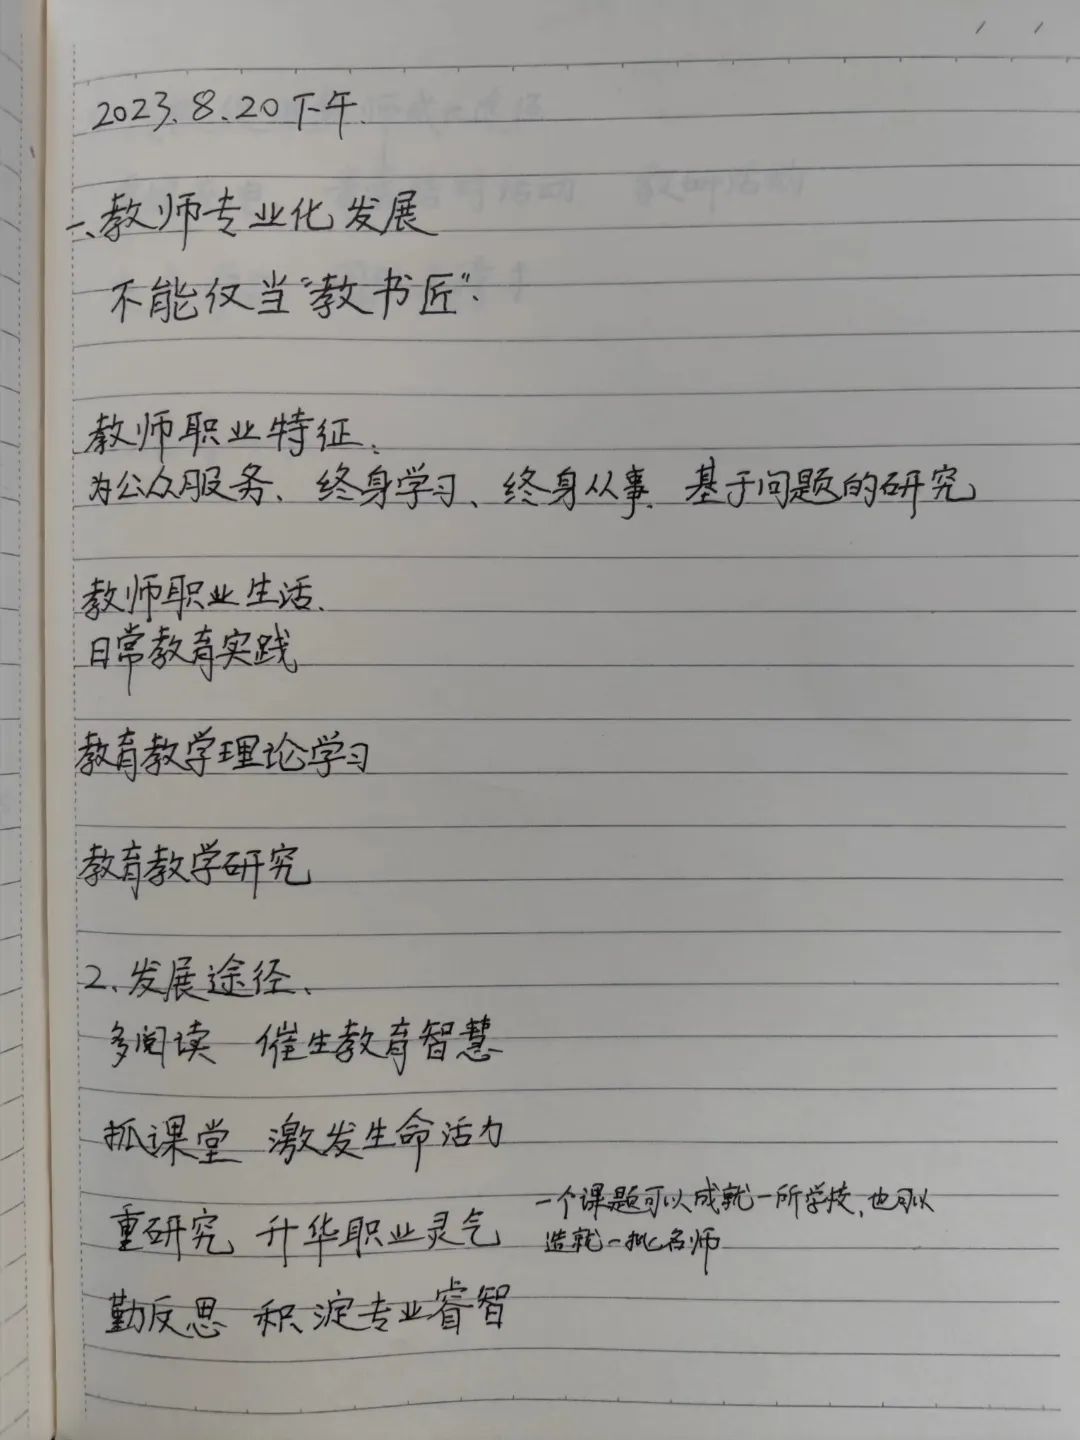 2023.8.20下午.
一、教师专业化发展
不能仅当“教书匠”.
教师职业特征、
为公众服务、终身学习、终身从事、基于问题的研究
教师职业生活、
日常教育实践
教育教学理论学习
教育教学研究
2、发展途径、
多阅读 催生教育智慧
抓课堂 激发生命活力
重研究 升华职业灵气 一个课题可以成就一所学校,也可以
造就一批名师
勤反思 积淀专业睿智